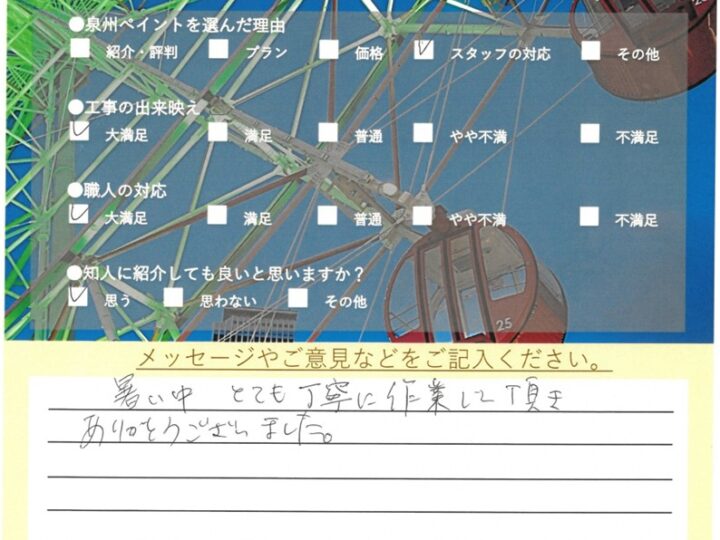 ●泉州ペイントを選んだ理由
紹介・評判 プラン 価格 スタッフの対応 その他
●工事の出来映え
大満足 満足 普通 やや不満 不満足
●職人の対応
大満足 満足 普通 やや不満 不満足
●知人に紹介しても良いと思いますか？
思う 思わない その他
25
メッセージやご意見などをご記入ください。
暑い中 とても丁寧に作業して頂き
ありがとうございました。